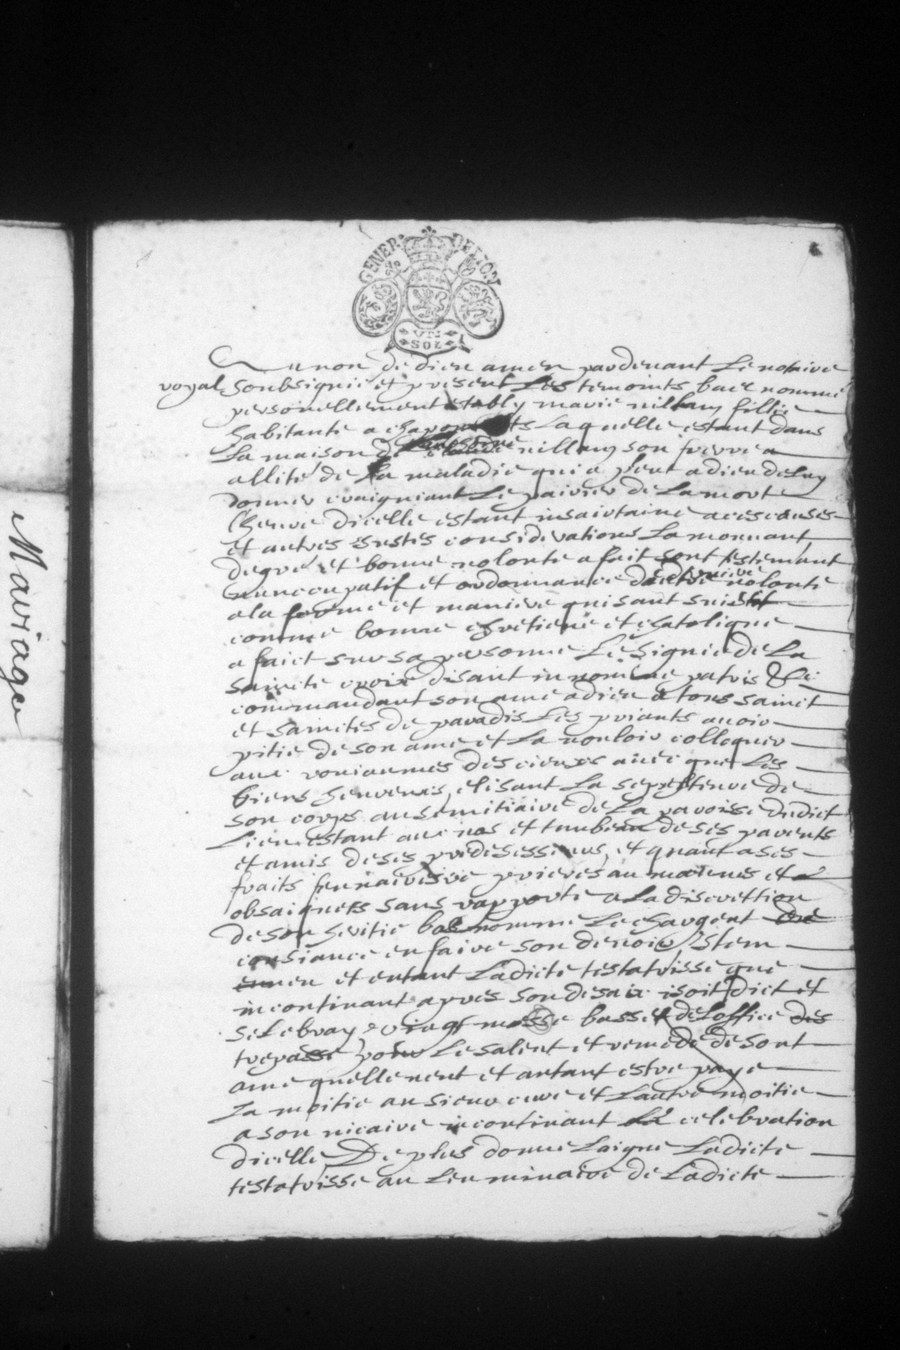 GENER. DE LION
UN
SOL
Au non de dieu amen pardevant Le notaire
royal soubsignié et present Les temoints bace nommé
personellement estably marie villany fillie
habitante a chapon ts Laquelle estant dans
La maison de villany son frerre a
allité de La maladie qui a pleut a dieu de Luy
donner craigniant Le pairier de La mort
Lheure dicelle estant insairtaine a ces causes
et autres justes considerations La mouvant
de gré et bonne volonte a fait sont testemant
nuncupatif et ordonnance de volonte
a la forme et maniere qui sant suist
comme bonne chretiene et chatolique
a faict sur sa personne Le signe de La
saincte croix disant in nomine patris &c
commandant son ame a dieu a tous sainct
et sainctes de paradis Les priants avoir
pitie de son ame et La vouloir colloquer
aux roniaumes des cieux avec que Les
biens heureuxs elisant La sepulteure de
son corps au semitiaire de La paroisse dudict
Lieu estant aux vas et tunbeau de ses parents
et amis de ses predesesseurs et quant a ses
fraits funnairesre prieres aumaunes et
obsaiques sans rapporte a La discrettion
de son heritie bas nomme Le chargent
consiance en faire son devoir Item
et entant Ladicte testatrisse que
incontinant apres son desaix isoit dict et
selebray vingt messe basse de Loffice des
trepasse pour Le salut et remede de sont
ame quellement et autant estre paye
La moitie au sieur cure et Lautre moitie
a son vicaire incontinant La celebration
dicelle De plus donne Laigue Ladicte
testatrisse au Leuminaire de Ladicte
Mariage